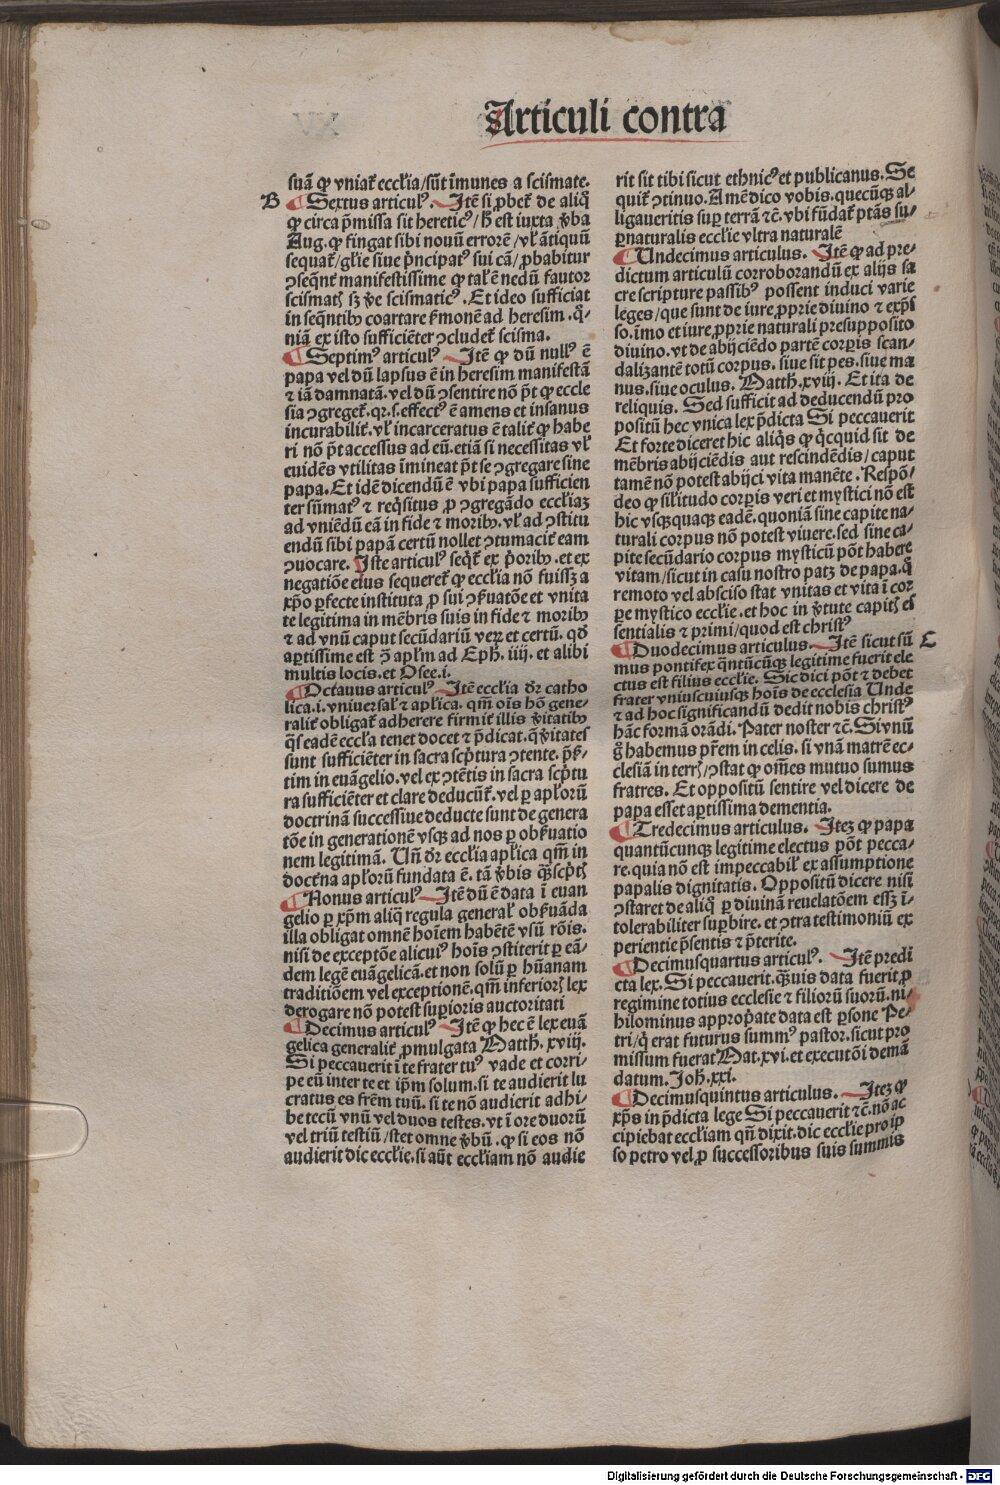 Articuli contra
suā ꝙ vniat᷑ eccl̄ia/sūt īmunes a scismate.
B ¶ Sextus articulꝰ. Itē si ꝓbet᷑ de aliq̄
ꝙ circa p̄missa sit hereticꝰ/ hͦ est iuxta v̓ba
Aug. ꝙ fingat sibi nouū errorē/vl̓ ātiquū
sequat᷑/gl̓ie siue p̓ncipatꝰ sui cā/ꝓbabitur
ↄseq̄nt᷑ manifestissime ꝙ talē nedū fautor
scismatꝭ sꝫ v̓e scismaticꝰ. Et ideo sufficiat
in seq̄ntibꝰ coartare s̓monē ad heresim. qͦ-
niā ex isto sufficiēter ↄcludet᷑ scisma.
¶ Septimꝰ articulꝰ Itē ꝙ dū nullꝰ ē
papa vel dū lapsus ē in heresim manifestā
⁊ iā damnatā. vel dū ↄsentire nō p̄t ꝙ eccle
sia ↄgreget᷑. qr. s. effectꝰ ē amens et insanus
incurabilit᷑. vl̓ incarceratus ē talit᷑ ꝙ habe
ri nō p̄t accessus ad eū. etiā si necessitas vl̓
euidēs vtilitas īmineat p̄t se ↄgregare sine
papa. Et idē dicendū ē vbi papa sufficien
ter sūmatꝰ ⁊ req̓situs ꝓ ↄgregādo eccl̄iaꝫ
ad vniēdū eā in fide ⁊ moribꝰ. vl̓ ad ↄstitu
endū sibi papā certū nollet ↄtumacit᷑ eam
ↄuocare. Iste articulꝰ seq̓t᷑ ex p̓oribꝰ. et ex
negatiōe eius sequeret᷑ ꝙ eccl̄ia nō fuissꝫ a
xp̄o ꝑfecte instituta ꝓ sui ↄẜuatōe et vnita
te legitima in mēbris suis in fide ⁊ moribꝰ
⁊ ad vnū caput secūdariū veꝝ et certū. qd̓
aꝑtissime est ↄ̄ apl̄m ad Eph̓. iiij. et alibi
multis locis. et Osee. i.
¶ Octauus articulꝰ Itē eccl̄ia dr̄ catho
lica. i. vniuersal̓ ⁊ apl̄ica. qm̄ oīs hō gene-
ralit᷑ obligat᷑ adherere firmit᷑ illis v̓itatibꝰ
q̄s eadē eccl̄a tenet docet ⁊ p̄dicat. q̄ v̓itates
sunt sufficiēter in sacra scp̓tura ↄtente. p̄ẜ-
tim in euāgelio. vel ex ↄtētis in sacra scp̓tu
ra sufficiēter et clare deducūt᷑. vel ꝑ apl̄oꝝ
doctrinā successiue deducte sunt de genera
tōe in generationē vsqꝫ ad nos ꝑ obẜuatio
nem legitimā. Un̄ dr̄ eccl̄ia apl̄ica qm̄ in
doct̓na apl̄oꝝ fundata ē. tā v̓bis q̄ꝫ scp̓tꝭ
¶ Nonus articulꝰ Itē dū ē data ī euan
gelio ꝑ xp̄m aliq̄ regula general̓ obẜuāda
illa obligat omnē hoīem habētē vsū rōis.
nisi de exceptōe alicuiꝰ hoīs ↄstiterit ꝑ eā-
dem legē euāgelicā. et non solū ꝑ hūanam
traditiōem vel exceptionē. qm̄ inferiorꝭ lex
derogare nō potest suꝑioris auctoritati
¶ Decimus articulꝰ Itē ꝙ hec ē lex euā
gelica generalit᷑ ꝓmulgata Matth̓. xviij.
Si peccauerit ī te frater tuꝰ vade et corri-
pe eū inter te et ip̄m solum. si te audierit lu
cratus es fr̄em tuū. si te nō audierit adhi-
be tecū vnū vel duos testes. vt ī ore duorū
vel triū testiū/stet omne v̓bū. ꝙ si eos nō
audierit dic eccl̄ie. si aūt eccl̄iam nō audie
rit sit tibi sicut ethnicꝰ et publicanus. Se
quit᷑ ↄtinuo. Amē dico vobis. quecūqꝫ al-
ligaueritis suꝑ terrā ⁊c̄. vbi fūdat᷑ ptās su-
ꝑnaturalis eccl̄ie vltra naturalē
¶ Undecimus articulus. Itē ꝙ ad pre-
dictum articulū corroborandū ex alijs sa
cre scripture passibꝰ possent induci varie
leges/que sunt de iure ꝓprie diuino ⁊ exp̄s
so. īmo et iure ꝓprie naturali presupposito
diuino. vt de abijciēdo partē corꝑis scan-
dalizantē totū corpus. siue sit pes. siue ma
nus. siue oculus. Matth̓. xviij. Et ita de
reliquis. Sed sufficit ad deducendū pro
positū hec vnica lex p̄dicta Si peccauerit
Et forte diceret hic aliq̓s ꝙ q̓cquid sit de
mēbris abijciēdis aut rescindēdis/caput
tamē nō potest abijci vita manēte. Respō-
deo ꝙ sil̓itudo corꝑis veri et mystici nō est
hic vsqꝫquaqꝫ eadē. quoniā sine capite na-
turali corpus nō potest viuere. sed sine ca-
pite secūdario corpus mysticū pōt habere
vitam/sicut in casu nostro patꝫ de papa. q̄
remoto vel absciso stat vnitas et vita ī cor
ꝑe mystico eccl̄ie. et hoc in v̓tute capitꝭ es
sentialis ⁊ primi/quod est christꝰ
¶ Duodecimus articulus. Itē sicut sū C
mus pontifex q̄ntūcūqꝫ legitime fuerit ele
ctus est filius eccl̄ie. Sic dici pōt ⁊ debet
frater vniuscuiusqꝫ hoīs de ecclesia Unde
⁊ ad hoc significandū dedit nobis christꝰ
hāc formā orādi. Pater noster ⁊c̄. Si vnū
g̊ habemus pr̄em in celis. si vnā matrē ec-
clesiā in terrꝭ/ↄstat ꝙ om̄es mutuo sumus
fratres. Et oppositū sentire vel dicere de
papa esset aꝑtissima dementia.
¶ Tredecimus articulus. Iteꝫ ꝙ papa
quantūcunqꝫ legitime electus pōt pecca-
re. quia nō est impeccabil̓ ex assumptione
papalis dignitatis. Oppositū dicere nisi
ↄstaret de aliq̄ ꝑ diuinā reuelatōem essꝫ ī-
tolerabiliter suꝑbire. et ↄtra testimoniū ex
perientie p̄sentis ⁊ p̄terite.
¶ Decimusquartus articulꝰ. Itē predi
cta lex. Si peccauerit. q̄ꝫuis data fuerit ꝓ
regimine totius ecclesie ⁊ filiorū suorū. ni-
hilominus approp̓ate data est ꝑsone Pe-
tri/q̓ erat futurus summꝰ pastor. sicut pro
missum fuerat Mat. xvi. et executōi demā
datum. Joh̓. xxi.
¶ Decimusquintus articulus. Iteꝫ ꝙ
xp̄s in p̄dicta lege Si peccauerit ⁊c̄. nō ac
cipiebat eccl̄iam qn̄ dixit. dic eccl̄ie pro ip
so petro vel ꝓ successoribus suis summis
Digitalisierung gefördert durch die Deutsche Forschungsgemeinschaft - DFG